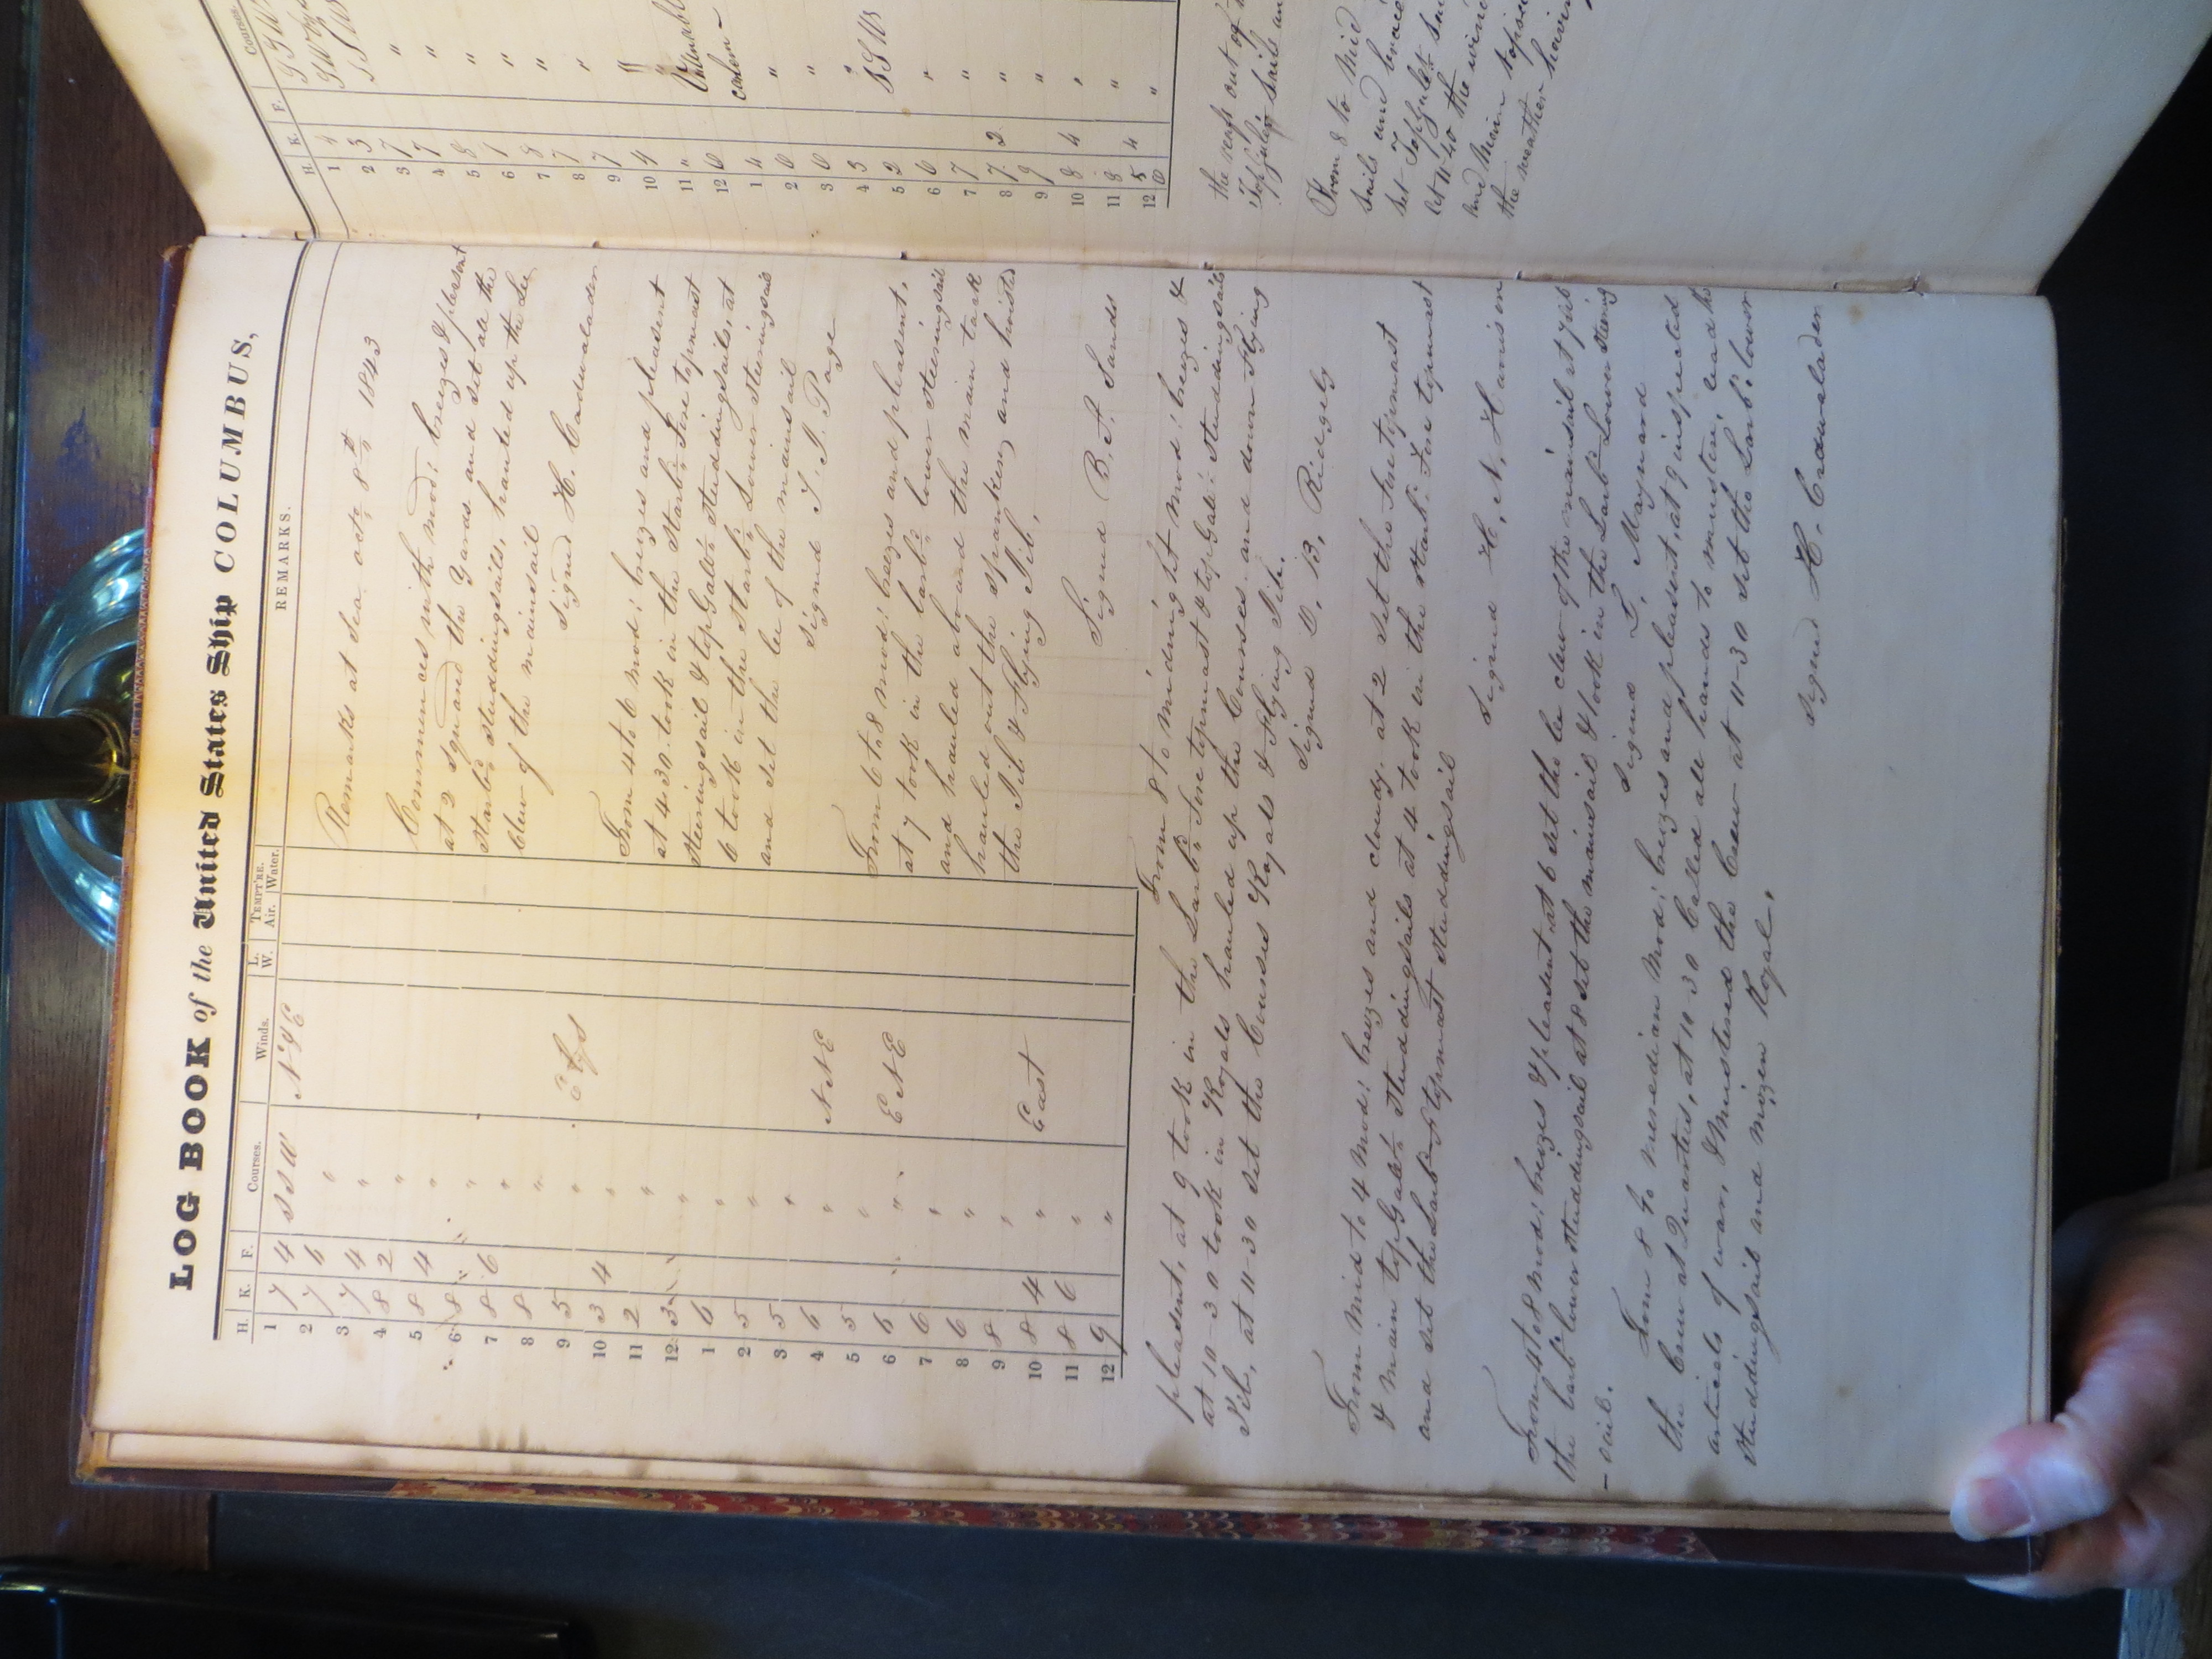 LOG BOOK of the United States Ship COLUMBUS,
H. K. F. Courses. Winds. L. W. TEMPT'RE. Air. Water. REMARKS.
1 7 4 SSW
2 7 6 "
3 7 4 "
4 8 2 "
5 8 4 "
6 8 " "
7 8 6 "
8 8 "
9 5 "
10 3 4 "
11 2 "
12 3 "
1 6 "
2 5 "
3 5 "
4 6 " NNE
5 5 "
6 6 " ENE
7 6 "
8 6 "
9 8 "
10 8 4 " East
11 8 6 "
12 9 "
Remarks at Sea Octr 8th 1843
Commences with mod: breezes & plesent
at 2 squared the Yards and set all the
Starbd Studdingsails, hauled up the Lee
Clew of the mainsail
Signed H. Cadwalader
From 4 to 6 mod: breezes and pleasent
at 4 30 took in the Starbd Fore topmast
Steeringsail & topGalt Studdingsails, at
6 took in the Starbd Lower Steeringsail
and set the lee of the mainsail
Signed T. J. Page
From 6 to 8 mod: breezes and pleasent,
at 7 took in the larbd lower Steeringsail
and hauled aboard the main tack
hauled out the spanker, and hoisted
the Jib & Flying Jib,
Signed B. F. Sands
From 8 to midnight mod: breezes &
pleasent, at 9 took in the Larbd Fore topmast & topGalt Studdingsails
at 10-30 took in Royals hauled up the Courses and down Flying
Jib, at 11-30 set the Courses Royals & Flying Jib.
Signed D. B. Ridgely
From Mid to 4 Mod: breezes and cloudy. at 2 set the Fore topmast
& main topGalt Studdingsails at 4 took in the Starbd Fore topmast
and set the Larbd F topmast Studdingsail
Signed H. N. Harison
From 4 to 8 Mod: breezes & pleasent, at 6 set the lee clew of the mainsail at 7
the larbd lower Studdingsail at 8 set the mainsail & took in the Larbd Lower Steering
-sail.
Signed L. Maynard
From 8 to meredian Mod: breezes and pleasent, at 9 inspected
the Crew at Quarters, at 10-30 Called all hands to muster, read the
articels of war, & Mustered the Crew at 11-30 set the Larbd lower
Studdingsail and mizen Royal.
Signed H. Cadwalader
Courses
H. K. F.
1 4
2 3
3 7 "
4 7 "
5 8 "
6 7 "
7 8 "
8 7 "
9 7
10 4 "
11 " Unenable
12 6
1 4 "
2 6 "
3 6 "
4 3
5 2 SSW
6 6 "
7 7 "
8 7 2 "
9 9 "
10 8 4 "
11 8 "
12
the reefs out of
sails an
From 8 to Mid
sails and brace
set Topgalt
At 11-40 the wind
and Main
the weather having